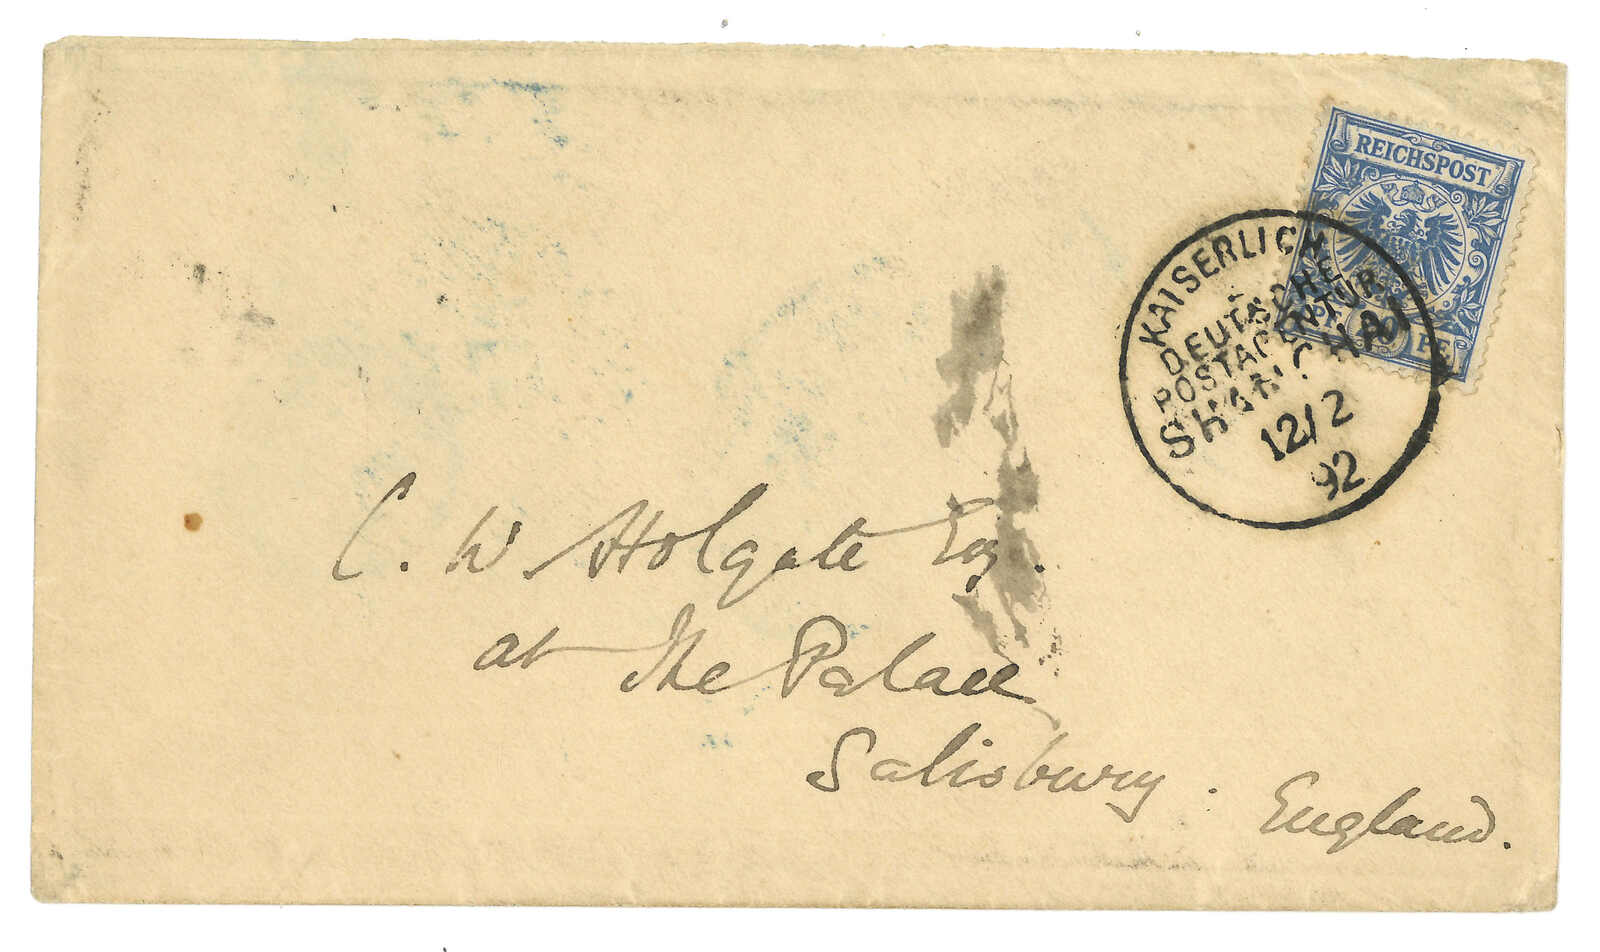 REICHSPOST
PF 20 PF
KAISERLICH
DEUTSCHE
POSTAGENTUR
SHANGHAI
12/2
92
C. W. Holgate Esq.
at The Palace
Salisbury.
England.